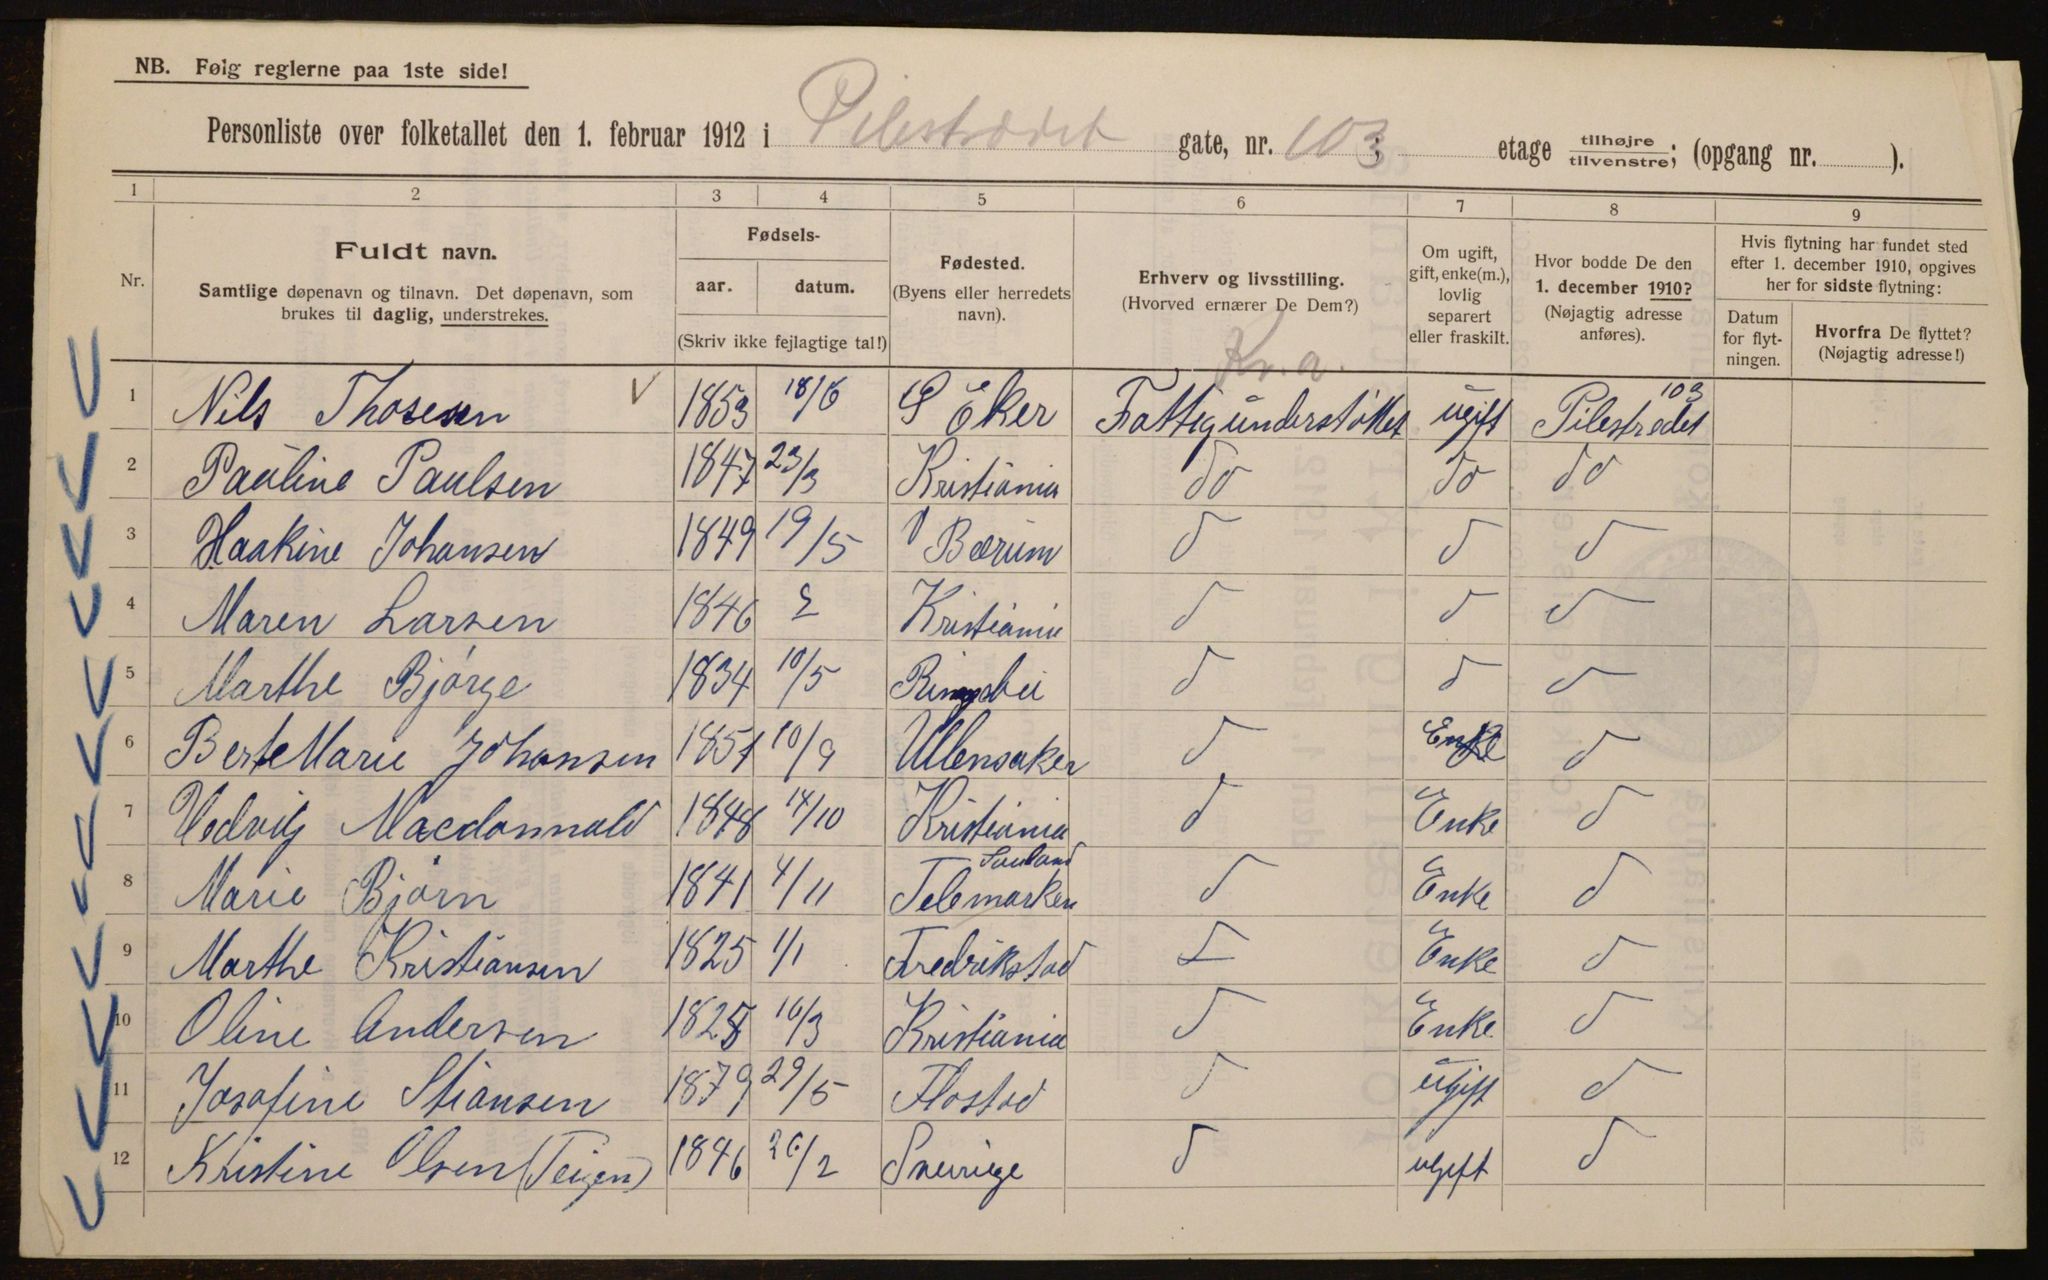 NB. Følg reglerne paa 1ste side!
Personliste over folketallet den 1. februar 1912 i Pilestrædet gate, nr. 103; etage tilhøjre tilvenstre; (opgang nr. ).
1 2 3 4 5 6 7 8 9
Nr.
Fuldt navn.
Samtlige døpenavn og tilnavn. Det døpenavn, som
brukes til daglig, understrekes.
Fødsels-
aar. datum.
(Skriv ikke fejlagtige tal!)
Fødested.
(Byens eller herredets
navn).
Erhverv og livsstilling.
(Hvorved ernærer De Dem?)
Kr.a.
Om ugift,
gift, enke(m.),
lovlig
separert
eller fraskilt.
Hvor bodde De den
1. december 1910?
(Nøjagtig adresse
anføres).
Hvis flytning har fundet sted
efter 1. december 1910, opgives
her for sidste flytning:
Datum
for flyt-
ningen.
Hvorfra De flyttet?
(Nøjagtig adresse!)
1 Nils Thosesen 1853 18/6 S Eker Fattigunderstøttet ugift Pilestredet 103
2 Pauline Paulsen 1847 23/3 Kristiania do do do
3 Haakine Johansen 1849 19/5 Bærum d d d
4 Maren Larsen 1846 Kristiania d d d
5 Marthe Bjørge 1834 10/5 d d d
6 Berte Marie Johansen 1851 10/9 Ullensaker d Enke d
7 Hedvig Macdonnald 1848 14/10 Kristiania d Enke d
8 Marie Bjørn 1841 4/11 Telemarken Sauland d Enke d
9 Marthe Kristiansen 1825 1/1 Fredrikstad Enke d
10 Oline Andersen 1828 16/3 Kristiania d Enke d
11 Josefine Stiansen 1879 29/5 Flostad d ugift d
12 Kristine Olsen (Teigen) 1846 26/2 Sverrige d ugift d